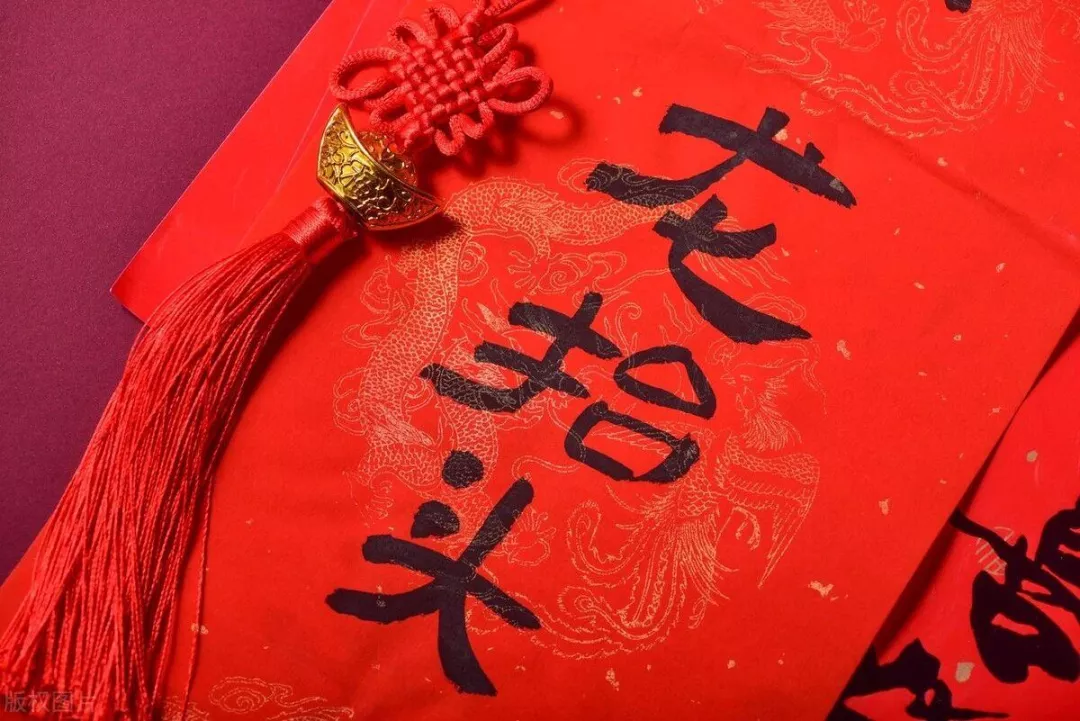 龙抬头
版权图片